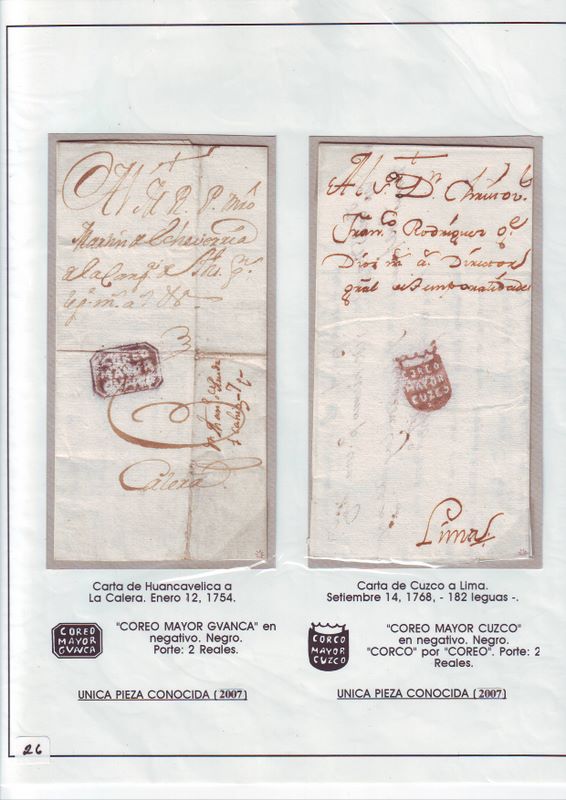 Al M. R. P. Mro
Martin de Echeverria
de la Comp.ª de
Calera
COREO
MAYOR
GVANCA
Al Sr. Dn. Christov.
Franco. Rodriguez qe.
Dios m. a. Director
gral de Temporalidade
CORCO
MAYOR
CUZCO
Lima
Carta de Huancavelica a
La Calera. Enero 12, 1754.
COREO
MAYOR
GVNCA
"COREO MAYOR GVANCA" en
negativo. Negro.
Porte: 2 Reales.
UNICA PIEZA CONOCIDA (2007)
Carta de Cuzco a Lima.
Setiembre 14, 1768, - 182 leguas -.
CORCO
MAYOR
CUZCO
"COREO MAYOR CUZCO"
en negativo. Negro.
"CORCO" por "COREO". Porte: 2
Reales.
UNICA PIEZA CONOCIDA (2007)
26